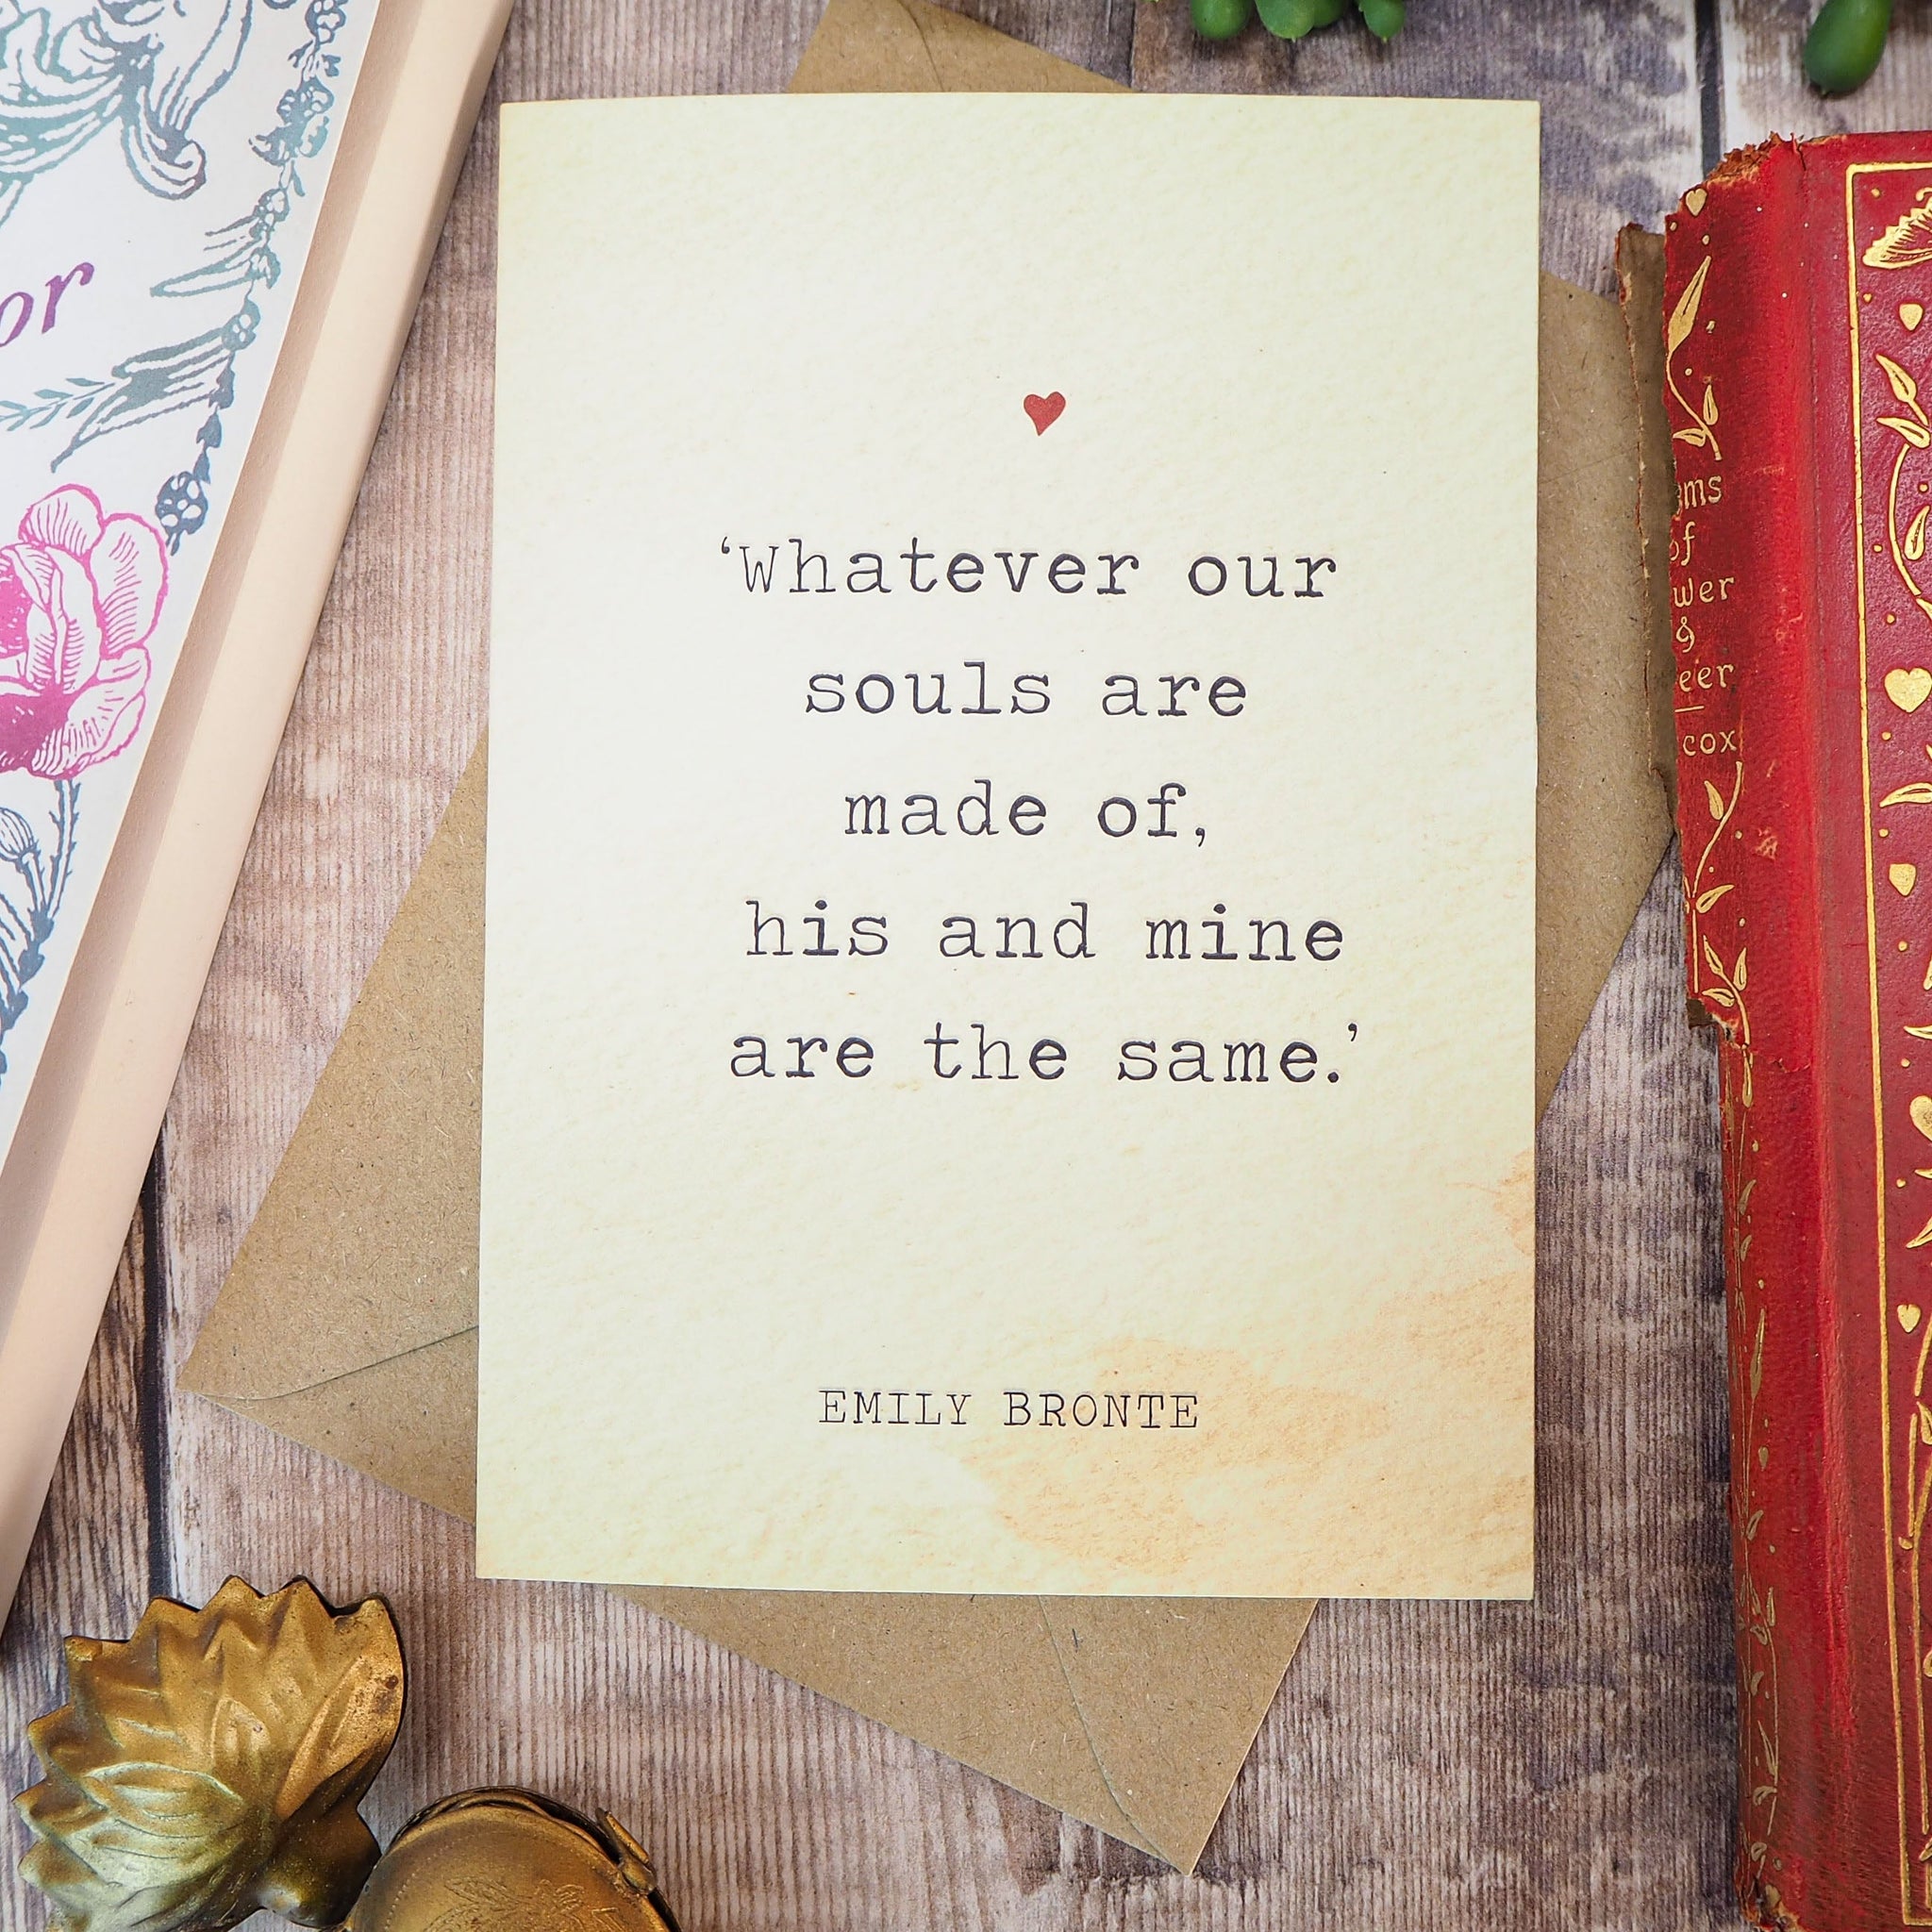 ‘Whatever our
souls are
made of,
his and mine
are the same.’
EMILY BRONTE
of
&